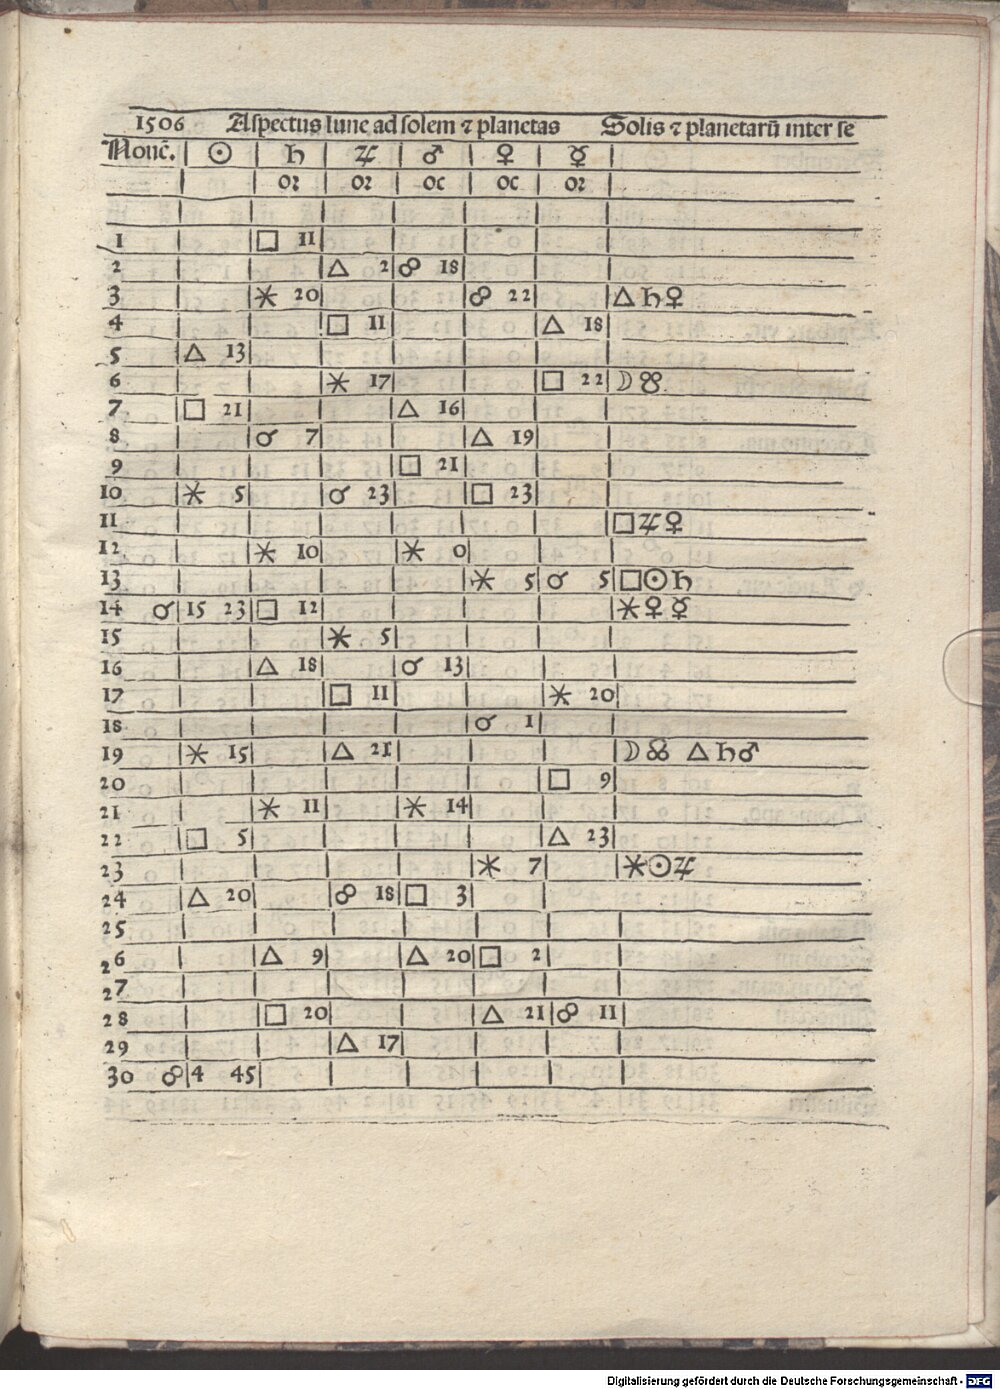 1506 Aspectus lune ad solem ⁊ planetas Solis ⁊ planetarū inter se
Nouē. ☉ ♄ ♃ ♂ ♀ ☿
oꝛ oꝛ oc oc oꝛ
1 □ 11
2 △ 2 ☍ 18
3 ⚹ 20 ☍ 22 △♄♀
4 □ 11 △ 18
5 △ 13
6 ⚹ 17 □ 22 ☽☋
7 □ 21 △ 16
8 ☌ 7 △ 19
9 □ 21
10 ⚹ 5 ☌ 23 □ 23
11 □♃♀
12 ⚹ 10 ⚹ 0
13 ⚹ 5 ☌ 5 □☉♄
14 ☌ 15 23 □ 12 ⚹♀☿
15 ⚹ 5
16 △ 18 ☌ 13
17 □ 11 ⚹ 20
18 ☌ 1
19 ⚹ 15 △ 21 ☽☊ △♄♂
20 □ 9
21 ⚹ 11 ⚹ 14
22 □ 5 △ 23
23 ⚹ 7 ⚹☉♃
24 △ 20 ☍ 18 □ 3
25
26 △ 9 △ 20 □ 2
27
28 □ 20 △ 21 ☍ 11
29 △ 17
30 ☍ 4 45
Digitalisierung gefördert durch die Deutsche Forschungsgemeinschaft - DFG